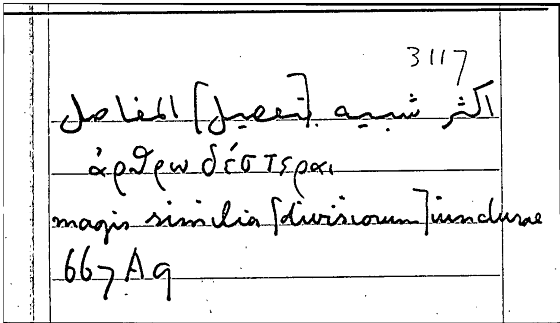 3117
اكثر شبيه [بتفصيل] المفاصل
ἀρθρωδέστεραι
magis similia [divisiorum] iuncturae
667 A 9